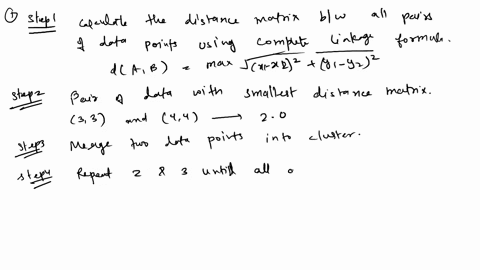 Step1 Calculate the distance matrix b/w all pairs
of data points using compute linkage formula.
d(A,B) = max √(x1-x2)² + (y1-y2)²
Step2 Pair of data with smallest distance matrix.
(3,3) and (4,4) → 2.0
Step3 Merge two data points into cluster.
Step4 Repeat 2 & 3 until all